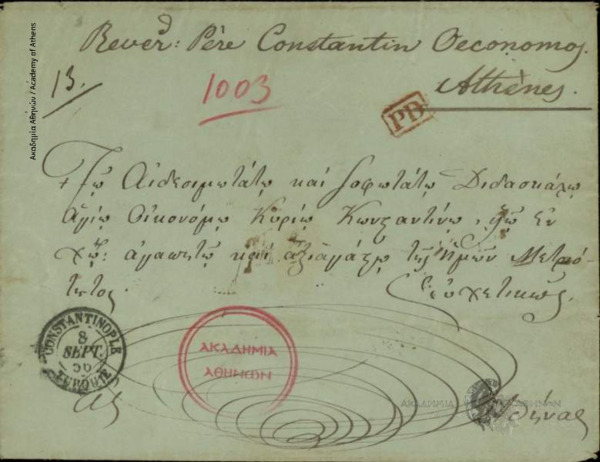 Ακαδημία Αθηνών / Academy of Athens
Reverd: Père Constantin Oeconomos.
Athènes.
13.
1003
PD
Τῷ Αἰδεσιμωτάτῳ καὶ σοφωτάτῳ Διδασκάλῳ
ἁγίῳ Οἰκονόμῳ Κυρίῳ Κωνσταντίνῳ, τῷ ἐν
Χῷ: ἀγαπητῷ καὶ τῆς ἡμῶν Μετριό-
τητος.
Εὐχετικῶς.
CONSTANTINOPLE
8
SEPT.
56
TURQUIE
ΑΚΑΔΗΜΙΑ
ΑΘΗΝΩΝ
ΑΚΑΔΗΜΙΑ ΑΘΗΝΩΝ
Εἰς
Ἀθήνας